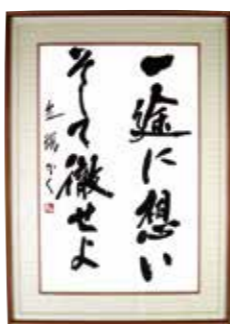 一途に想い
そして徹せよ